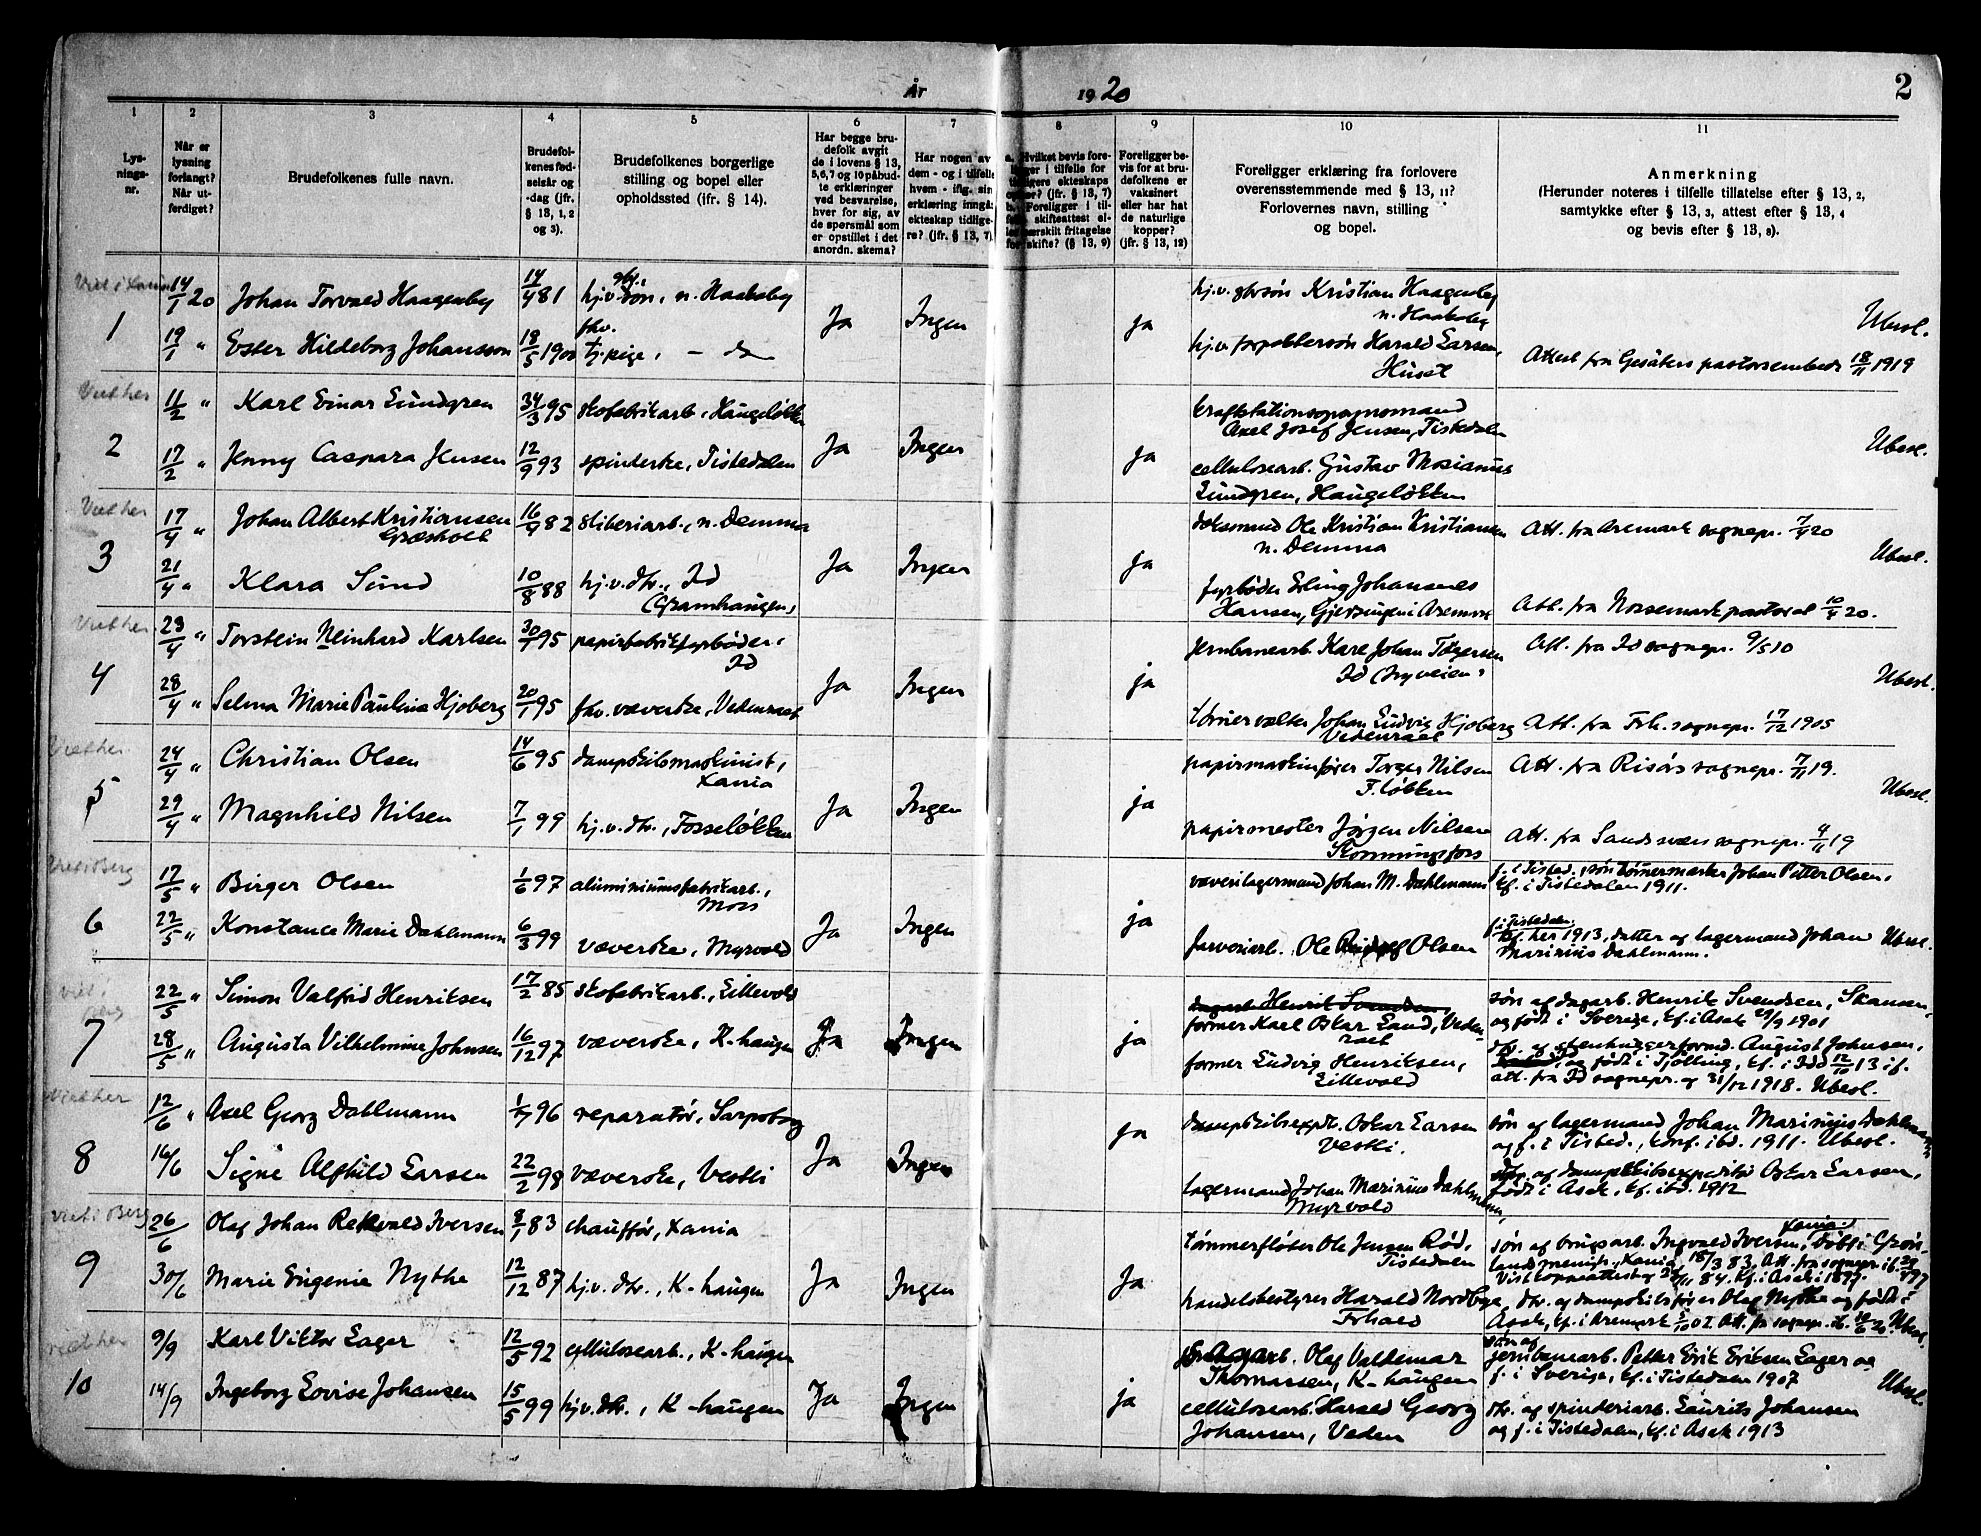 År 1920
2
1 2 3 4 5 6 7 8 9 10 11
Lys-
nings-
nr.
Når er
lysning
forlangt?
Når ut-
ferdiget?
Brudefolkenes fulle navn.
Brudefol-
kenes fød-
selsår og
-dag (jfr.
§ 13, 1, 2
og 3).
Brudefolkenes borgerlige
stilling og bopel eller
opholdssted (jfr. § 14).
Har begge bru-
defolk avgit
de i lovens § 13,
5,6,7 og 10 påbud-
te erklæringer
ved besvarelse,
hver for sig, av
de spørsmål som
er opstillet i det
anordn. skema?
Har nogen av
dem - og i tilfelle
hvem - iflg. sin
erklæring inngåt
ekteskap tidlige-
re? (jfr. § 13, 7)
a. Hvilket bevis fore-
ligger i tilfelle for
tidligere ekteskaps
ophør? (jfr. § 13, 7)
b. Foreligger i til-
felle skifteattest el-
ler særskilt fritagelse
for skifte? (§ 13, 9)
Foreligger be-
vis for at bru-
defolkene er
vaksinert
eller har hat
de naturlige
kopper?
(jfr. § 13, 12)
Foreligger erklæring fra forlovere
overensstemmende med § 13, 11?
Forlovernes navn, stilling
og bopel.
Anmerkning
(Herunder noteres i tilfelle tillatelse efter § 13, 2,
samtykke efter § 13, 3, attest efter § 13, 4
og bevis efter § 13, 8).
1 14/1 20 Johan Torvald Haagenby 14/4 81 hj.v. søn, n. Haakaby Ja Ingen ja hj.v. gbrsøn Kristian Haagenby
n. Haakaby
Ubesl.
19/1 " Ester Hildeborg Johansson 18/5 1900 fhv. tj.pige, - do hj.v. Harald Larsen,
Huset
Attest fra pastorsembede 18/11 1919
Viet her
2 11/2 " Karl Einar Lundgren 95 skofabrikarb., Haugeløkken Ja Ingen ja
Axel Josef Jensen, Tistedalen
Ubesl.
17/2 " Jenny Caspara Jensen 12/9 93 spinderske, Tistedalen cellulosearb. Gustav
Lundgren, Haugeløkken
Viet her
3 17/4 " Johan Albert Kristiansen
Græsholt
16/4 82 sliberiarb., n. Demma Ja Ingen ja Ole Kristian Kristiansen
n. Demma
Att. fra Aremark sognepr. 7/4 20
Ubesl.
21/4 " Klara Sund 10/8 88 hj.v. dtr., Id
(Gramhaugen)
fyrbøder Erling Johannes
Hansen, i Aremark
Att. fra pastorat 10/4 20.
Viet her
4 23/4 " Torstein Reinhard Karlsen 95 papirfabrikfyrbøder,
Id
Ja Ingen ja jernbanearb. Karl Johan Torgersen
Id (nyveien)
Att. fra Id sognepr. 9/5 10
Ubesl.
28/4 " Selma Marie Paulina Hjoberg 20/1 95 fhv. væverske, Vedenraet Johan Ludvig Hjoberg
Vedenraet
Att. fra Frh. sognepr. 17/12 1905
Viet her
5 24/4 " Christian Olsen 14/6 95 dampskibsmaskinist,
Xania
Ja Ingen ja papirmaskinfører Torger Nilsen
F.løkken
Att. fra Risørs sognepr. 7/11 19.
Ubesl.
29/4 " Magnhild Nilsen 7/1 99 hj.v. dtr., Fosseløkken papirmester Jørgen Nilsen
Att. fra Sandsvær sognepr. 4/11 19
Viet i Berg
6 17/5 " Birger Olsen 1/6 97 aluminiumsfabrikarb.,
Moss
Ja Ingen ja væverilagermand Johan M. Dahlmann
f. i Tisted., søn tømmermerker Johan Petter Olsen,
kf. i Tistedalen 1911.
22/5 " Konstance Marie Dahlmann 6/3 99 væverske, Myrvold farveriarb. Ole Olsen
f. i Tistedalen,
kf. her 1913, datter af lagermand Johan
Marinius Dahlmann.
Ubesl.
viet i Berg
7 22/5 " Simon Valfrid Henriksen 17/2 85 skofabrikarb., Lillevold Ja Ingen ja dagarb. Henrik Svendsen,
former Karl Oskar Lund, Veden-
raet
søn af dagarb. Henrik Svendsen, Skansen,
og født i Sverige, kf. i Asak 29/9 1901
28/5 " Augusta Vilhelmine Johnsen 16/12 97 væverske, K-haugen former Ludvig Henriksen,
Lillevold
dtr. af stenhuggerformd. August Johnsen,
og født i Tjølling, kf. i Idd 12/10 13 if.
att. fra Id sognepr. af 31/12 1918. Ubesl.
Viet her
8 12/6 " Axel Georg Dahlmann 1/7 96 reparatør, Sarpsborg Ja Ingen ja dampskibsexpdt. Oskar Larsen
Veski.
søn af lagermand Johan Marinius Dahlmann
og f. i Tisted., konf. ibd. 1911. Ubesl.
16/6 Signe Alfhild Larsen 22/2 98 væverske, Veski lagermand Johan Marinius Dahlmann,
Myrvold
dtr. af dampskibsexpeditør Oskar Larsen,
født i Asak, kf. ibd. 1912
Viet i Berg
9 26/6 Olaf Johan Rekvald Iversen 8/1 83 chauffør, Xania Ja Ingen Ja tømmerfløter Ole Jensen Rød,
Tistedalen
søn af brugsarb. Ingvald Iversen, Xania, født i Grøn-
lands menigh., Xania, 18/3 83, Att. fra sognepr.
84. Kf. i Asak i 1897.
30/6 Marie Eugenie Nythe 12/12 87 hj.v. dtr., K-haugen handelsbestyrer Harald Nordbye,
Frhald
dtr. af dampskibsfører Olaf Nythe og født i
Asak, kf. i Aremark 5/10 02. Att. fra sognepr. Ubesl.
viet her
10 9/9 Karl Viktor Lager 12/5 92 cellulosearb., K-haugen Ja Ingen ja Olaf Valdemar
Thomassen, K-haugen
søn af
jernbanearb. Petter Erik Eriksen Lager og
f. i Sverige, kf. i Tistedalen 1907
Ubesl.
14/9 Ingeborg Lovise Johansen 15/5 99 hj.v. dtr., K-haugen cellulosearb. Harald Georg
Johansen, Veden
dtr. af spinderiarb. Laurits Johansen
og f. i Tistedalen, kf. i Asak 1913